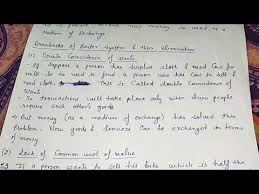 Medium of Exchange
Drawbacks of Barter System & their elimination
(1) Double Coincidence of Wants
Eg Suppose a person has surplus cloth & need Cow for
milk. So he need to find a person who has Cow to sell &
need cloth. This is Called double Coincidence of
Wants.
So transactions will take place only when two people
require each other's goods
→ But money (as a medium of exchange) has solved this
Problem. Now goods & services Can be exchanged in terms
of money
(2) Lack of Common unit of value
Eg If a person wants to sell his bike which is half the